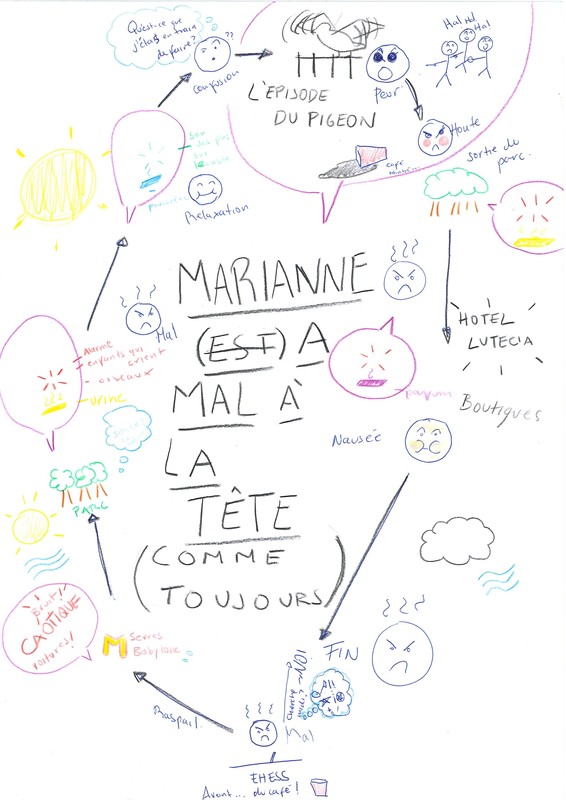 Qu'est-ce que
j'étais en train
de faire?
??
confusion
L'ÉPISODE
DU PIGEON
Peur
Ha! Ha!
Ha!
Honte
café
sortie du
parc.
Relaxation
MARIANNE
(EST) A
MAL À
LA
TÊTE
(COMME
TOUJOURS)
Mal
enfants qui
crient
oiseaux
urine
PARC
HOTEL
LUTECIA
Boutiques
parfum
Nausée
Bruit
CAOTIQUE
voitures!
M Sevres
Babylone
Raspail
FIN
NON!
Mal
EHESS
Avant... du café!